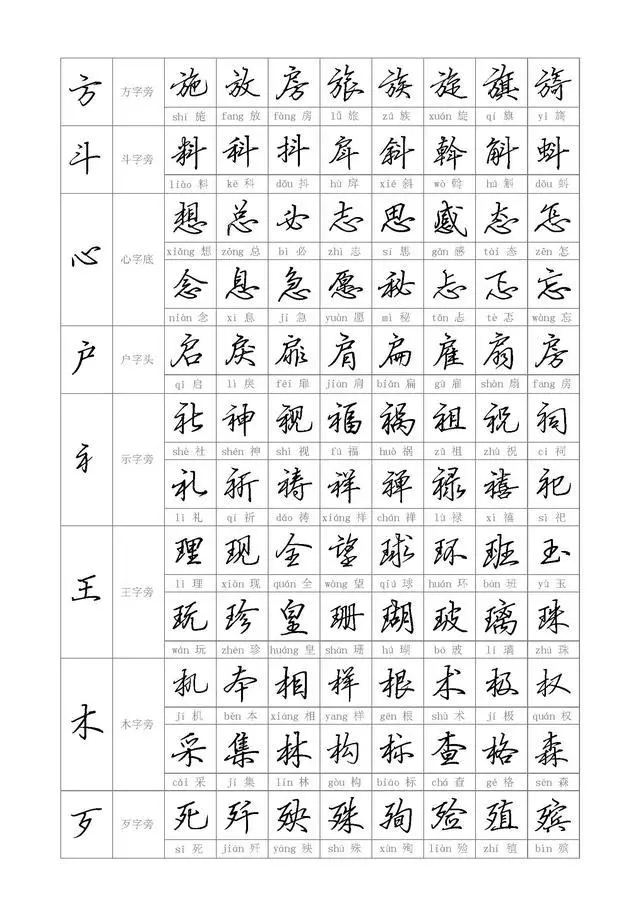 方 方字旁 施 放 房 旅 族 旋 旗 旖
shī 施 fang 放 fáng 房 lǚ 旅 zú 族 xuán 旋 qí 旗 yǐ 旖
斗 斗字旁 料 科 抖 戽 斜 斡 斛 蚪
liào 料 kē 科 dǒu 抖 hù 戽 xié 斜 wò 斡 hú 斛 dǒu 蚪
心 心字底 想 总 必 志 思 感 态 怎
xiǎng 想 zǒng 总 bì 必 zhì 志 sī 思 gǎn 感 tài 态 zěn 怎
念 息 急 愿 秘 忐 忑 忘
niàn 念 xī 息 jí 急 yuàn 愿 mì 秘 tǎn 忐 tè 忑 wàng 忘
户 户字头 启 戾 扉 肩 扁 雇 扇 房
qǐ 启 lì 戾 fēi 扉 jiān 肩 biǎn 扁 gù 雇 shàn 扇 fang 房
礻 示字旁 社 神 视 福 祸 祖 祝 祠
shè 社 shén 神 shì 视 fú 福 huò 祸 zǔ 祖 zhù 祝 cí 祠
礼 祈 祷 祥 禅 禄 禧 祀
lǐ 礼 qí 祈 dǎo 祷 xiáng 祥 chán 禅 lù 禄 xǐ 禧 sì 祀
王 王字旁 理 现 全 望 球 环 班 玉
lǐ 理 xiàn 现 quán 全 wàng 望 qiú 球 huán 环 bān 班 yù 玉
玩 珍 皇 珊 瑚 玻 璃 珠
wán 玩 zhēn 珍 huáng 皇 shān 珊 hú 瑚 bō 玻 lí 璃 zhū 珠
木 木字旁 机 本 相 样 根 术 极 权
jī 机 běn 本 xiāng 相 yang 样 gēn 根 shù 术 jí 极 quán 权
采 集 林 构 标 查 格 森
cǎi 采 jí 集 lín 林 gòu 构 biāo 标 chá 查 gé 格 sēn 森
歹 歹字旁 死 歼 殃 殊 殉 殓 殖 殡
sǐ 死 jiān 歼 yāng 殃 shū 殊 xùn 殉 liàn 殓 zhí 殖 bìn 殡